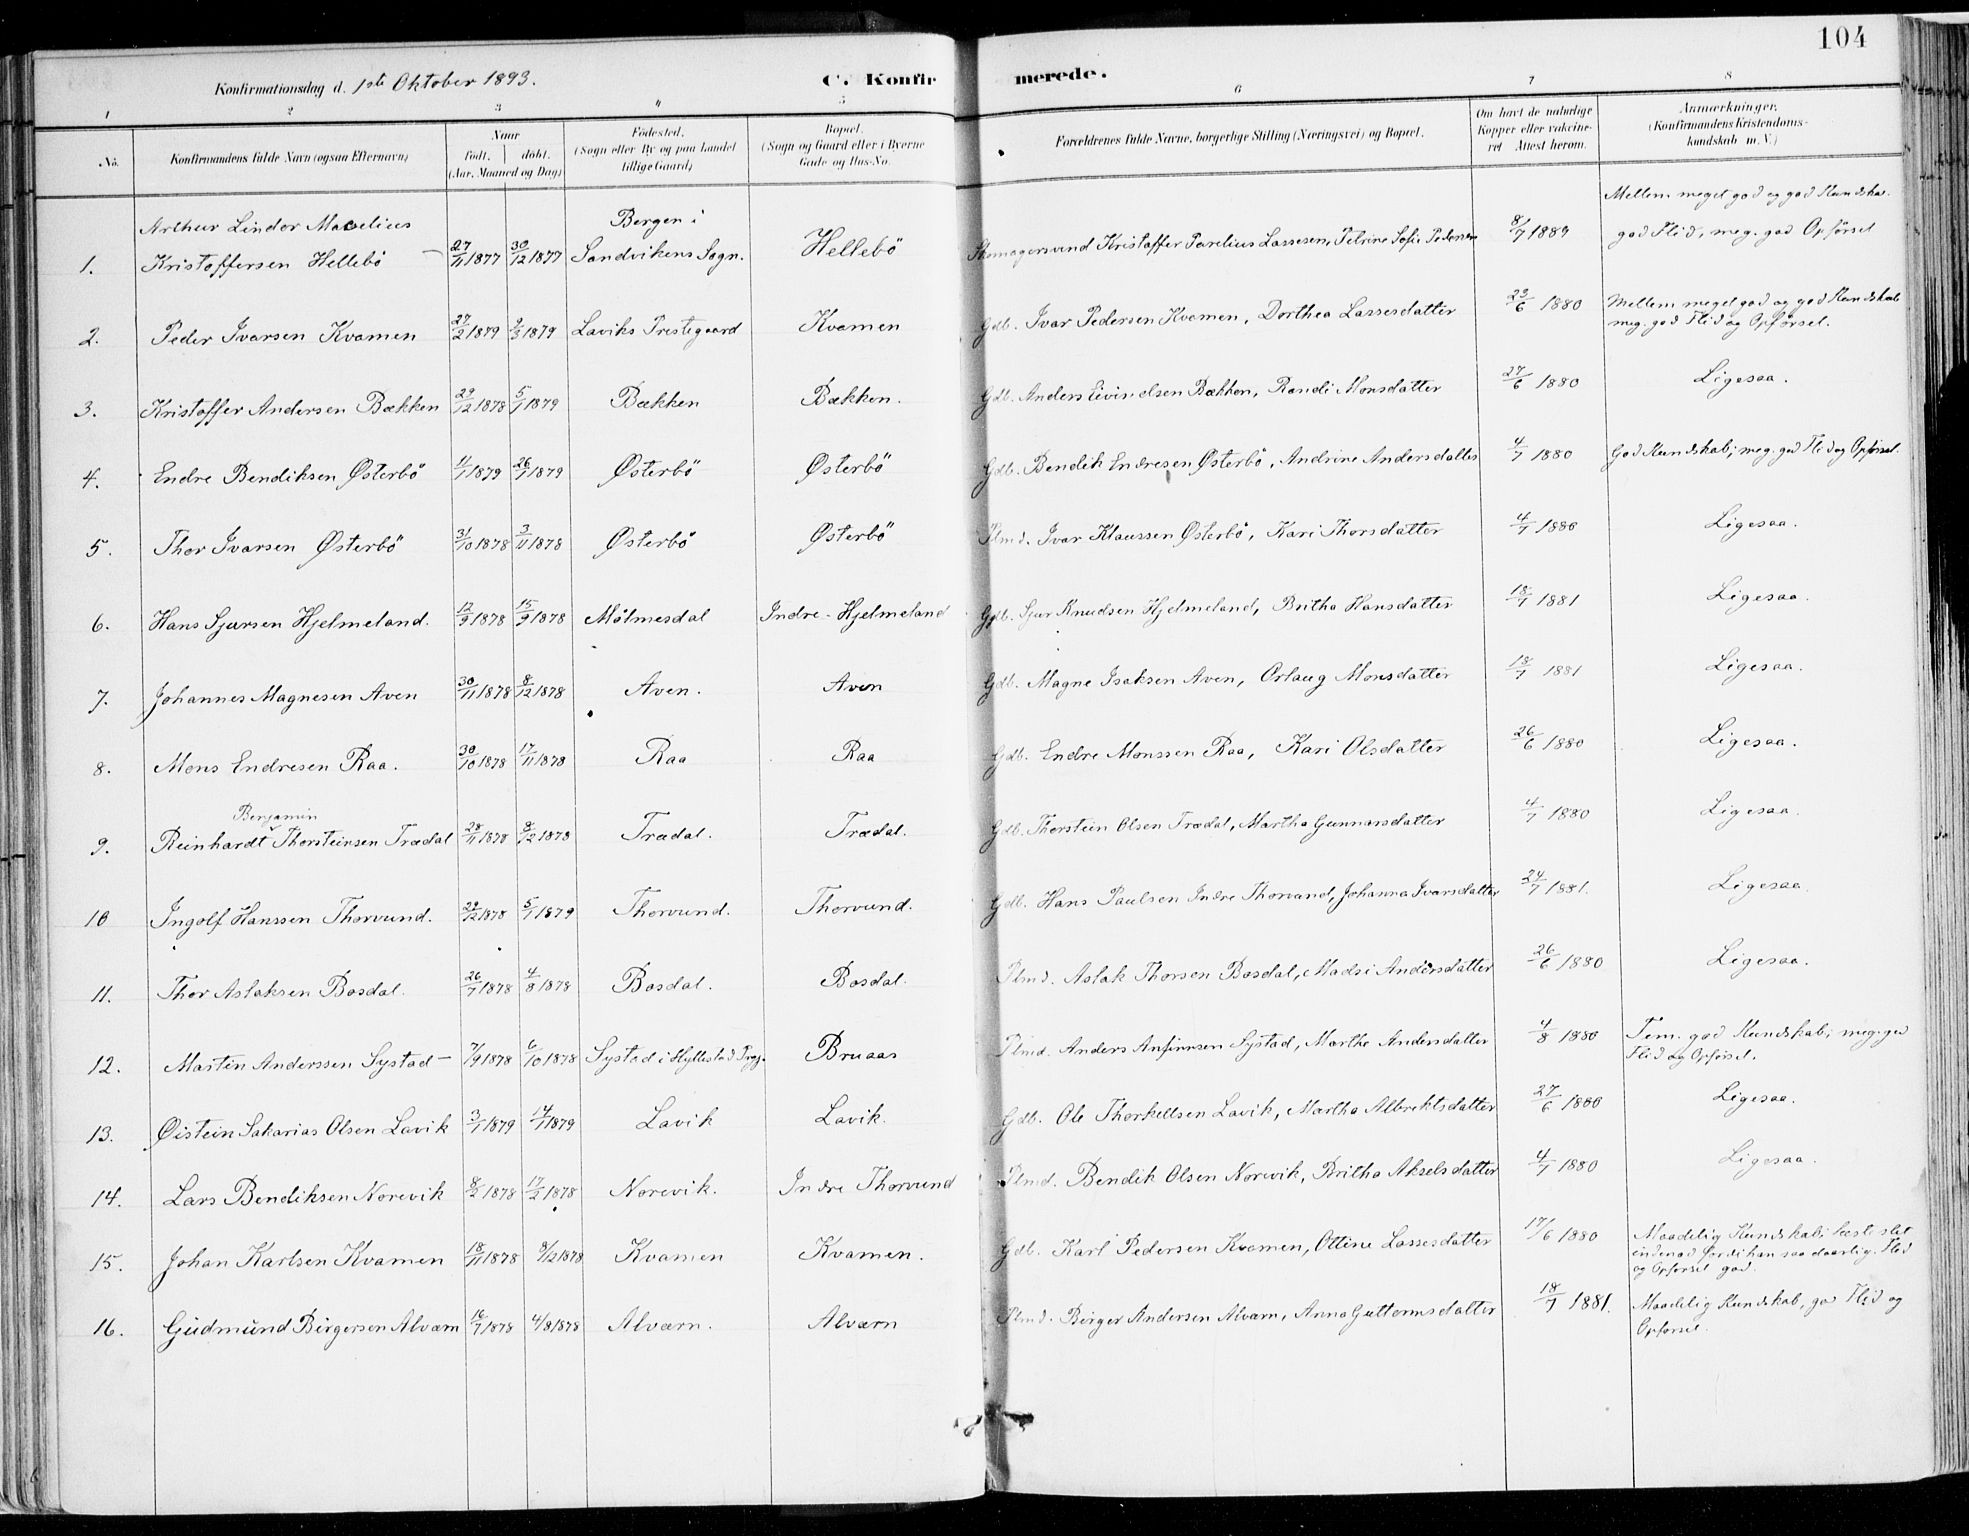 104
Konfirmationsdag d. 1ste Oktober 1893.
C. Konfirmerede.
1 2 3 4 5 6 7 8
No. | Konfirmandens fulde Navn (ogsaa Efternavn) | Naar født, døbt. (Aar, Maaned og Dag) | Fødested. (Sogn eller By og paa Landet tillige Gaard) | Bopæl. (Sogn og Gaard eller i Byerne Gade og Hus-No. | Forældrenes fulde Navne, borgerlige Stilling (Næringsvei) og Bopæl. | Om havt de naturlige Kopper eller vakcineret Attest herom. | Anmærkninger. (Konfirmandens Kristendomskundskab m. V.)
1. Arthur Lindor Kristoffersen Hellebö 27/11 1877 30/12 1877 Bergen i Sandvikens Sogn. Hellebö Kristoffer Parelius Lassesen, Petrine Sofie Pedersen 8/7 1889 Mellem meget god og god Kundska. god Flid, meg. god Opførsel
2. Peder Ivarsen Kvamen 27/2 1879 9/3 1879 Laviks Prestegaard Kvamen Gdb. Ivar Pedersen Kvamen, Dorthea Lassesdatter 23/6 1880 Mellem meget god og god Kundskab meg. god Flid og Opførsel.
3. Kristoffer Andersen Bækken 29/12 1878 5/1 1879 Bækken Bækken. Gdb. Anders Eivindsen Bækken, Randi Monsdatter 27/6 1880 Ligesaa.
4. Endre Bendiksen Østerbö 4/1 1879 26/1 1879 Østerbö Østerbö Gdb. Bendik Endresen Østerbö, Andrine Andersdatter 4/7 1880 God Kundskab; meg. god Flid og Opførsel.
5. Thor Ivarsen Østerbö 31/10 1878 3/11 1878 Østerbö Østerbö Plmd. Ivar Klaussen Østerbö, Kari Thorsdatter 4/7 1880 Ligesaa.
6. Hans Sjursen Hjelmeland. 12/9 1878 15/9 1878 Mölmesdal Indre-Hjelmeland Gdb. Sjur Knudsen Hjelmeland, Britha Hansdatter 18/7 1881 Ligesaa.
7. Johannes Magnesen Aven 30/11 1878 8/12 1878 Aven. Aven Gdb. Magne Isaksen Aven, Orlaug Monsdatter 18/7 1881 Ligesaa.
8. Mons Endresen Raa. 30/10 1878 17/11 1878 Raa Raa Gdb. Endre Monssen Raa, Kari Olsdatter 26/6 1880 Ligesaa.
9. Reinhardt Benjamin Thorsteinsen Trædal 28/11 1878 8/12 1878 Trædal. Trædal. Gdb. Thorstein Olsen Trædal, Martha Gunnarsdatter 4/7 1880 Ligesaa.
10 Ingolf Hanssen Thorvund. 29/12 1878 5/1 1879 Thorvund. Thorvund. Gdb. Hans Paulsen Indre Thorvund, Johanna Ivarsdatter 24/7 1881. Ligesaa
11. Thor Aslaksen Bosdal. 26/7 1878 4/8 1878 Bosdal. Bosdal. Plmd. Aslak Thorsen Bosdal, Madsi Andersdatter 26/6 1880 Ligesaa.
12. Martin Anderssen Systad- 7/9 1878 6/10 1878 Systad i Hyllestad Prgj. Bruaas Plmd. Anders Anfinnsen Systad, Marthe Andersdatter 4/8 1880 Tem. god Kundskab; meg. god Flid og Opførsel.
13. Øistein Sakarias Olsen Lavik 3/1 1879 14/1 1879 Lavik Lavik. Gdb. Ole Thorkellsen Lavik, Martha Albrektsdatter 27/6 1880 Ligesaa.
14. Lars Bendiksen Norevik 8/2 1878 17/2 1878 Norevik. Indre Thorvund Plmd. Bendik Olsen Norevik, Britha Akselsdatter 4/7 1880 Ligesaa.
15. Johan Karlsen Kvamen 18/11 1878 8/12 1878 Kvamen Kvamen. Gdb. Karl Pedersen Kvamen, Ottine Lassesdatter 17/6 1880 Maadelig Kundskab; læste slet indenad fordi han saa daarlig. Flid og Opførsel god.
16. Gudmund Birgersen Alværn 16/7 1878 4/8 1878 Alværn. Alværn Plmd. Birger Andersen Alværn, Anna Guttormsdatter 18/7 1881. Maadelig Kundskab, god Flid og Opførsel.